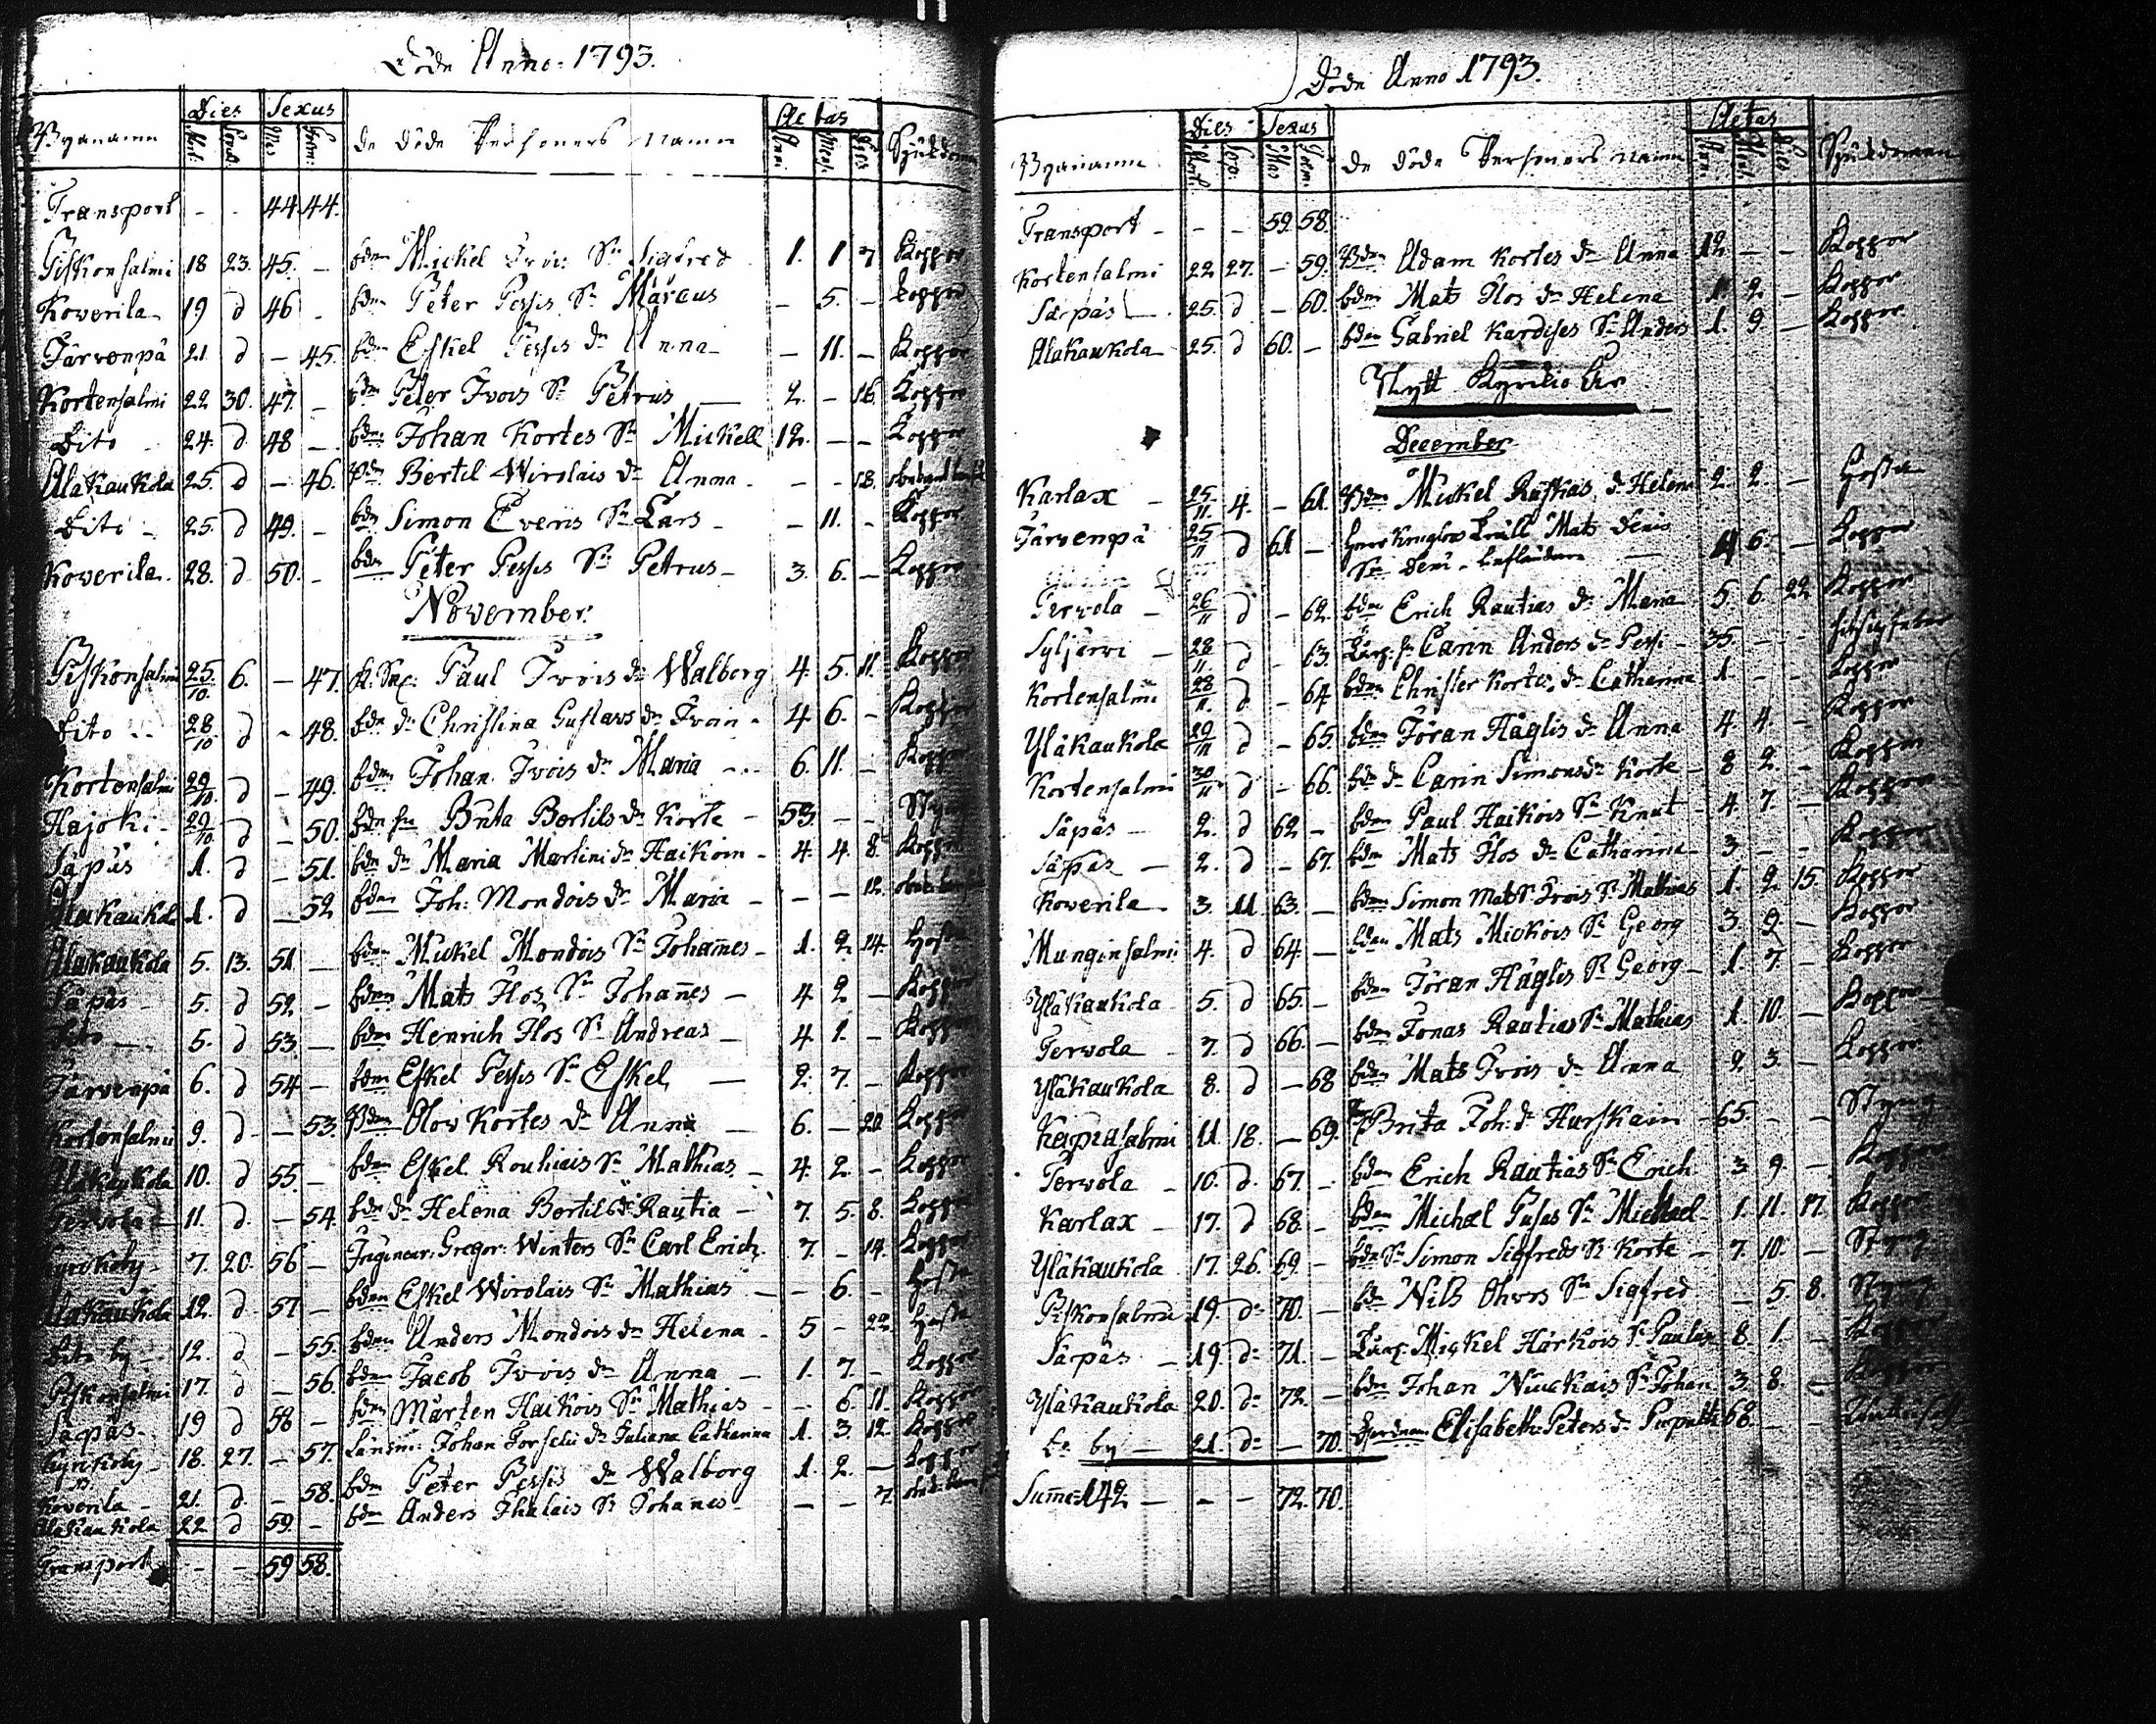 Döde Anno 1793.
Dies Sexus Aetas
Bÿanamn Mort: Sepult. Mas Foem: de döde Personers Namn Anni Mens: Dies Sjukdomar
Transport - - 44. 44.
Piskonsalmi 18 23. 45. - bdn Mickel Ivois Sn Sigfred 1. 1 7 Koppor
Koverila 19 d 46 - bdn Peter Pessis Sn Marcus - 5. - Koppor
Järvenpä 21. d - 45. bdn Eskel Pessis dr Anna - 11. - Koppor
Kortensalmi 22 30. 47. - bdn Peter Ivois Sn Petrus 2. - 16. Koppor
Dito 24. d 48 - bdn Johan Kortes Sn Mickell 12. - - Koppor
Alakaukola 25. d - 46. bdn Bertil Wirolais dr Anna - - 18.
Dito 25. d 49. - bdn Simon Evens Sn Lars - 11. - Koppor
Koverila 28. d 50. - bdn Peter Pessis Sn Petrus 3. 6. - Koppor
November.
Piskonsalmi 25/10 6. - 47. Paul Ivois dr Walborg 4. 5. 11. Koppor
Dito 28/10 d - 48. bdn dr Christina Gustavs dr Ivoin 4 6. - Koppor
Kortensalmi 29/10. d - 49. bdn Johan Ivois dr Maria 6. 11. - Koppor
Hajoki 29/10. d - 50. bdn hu Brita Bertils dr Korte 53. - - Styng
Säpäs 1. d - 51. bdn dr Maria Martini dr Haikoin 4. 4. 8. Koppor
Alakaukola 1. d - 52 bdn Joh: Mondois dr Maria - - 12.
Alakaukola 5. 13. 51 - bdn Mickel Mondois Sn Johannes 1. 2. 14. Hosta
Säpäs 5. d 52. - bdn Mats Hos Sn Johannes 4 2 - Koppor
Dito 5. d 53. - bdn Henrich Hos Sn Andreas 4 1. - Koppor
Järvenpä 6. d 54 - bdn Eskel Pessis Sn Eskel 2. 7. - Koppor
Kortensalmi 9. d - 53. bdn Olov Kortes dr Anna 6. - 20 Koppor
Alakaukola 10. d 55. - bdn Eskel Rouhiais Sn Mathias 4. 2 - Koppor
Tervola 11. d. - 54. bdn dr Helena Bertils dr Rautia 7. 5. 8. Koppor
Kyrkoby 7. 20. 56 - Ingineur: Gregor: Winters Sn Carl Erich 7. - 14. Koppor
Alakaukola 12. d 57 - bdn Eskel Wirolais Sn Mathias - 6. - Hosta
Dito by 12. d - 55. bdn Anders Mondois dr Helena 5 - 22. Hosta
Piskonsalmi 17. d - 56. bdn Jacob Ivois dr Anna 1. 7. - Koppor
Säpäs 19 d 58 - bdn Mårten Haikois Sn Mathias - 6. 11. Koppor
Kyrkoby 18. 27. - 57. Länsm: Johan Forselii dr Juliana Catharina 1. 3. 12. Koppor
Koverila 21. d. - 58. bdn Peter Pessis dr Walborg 1. 2. - Koppor
Alakaukola 22 d 59. - bdn Anders Ihalais Sn Johannes - - 7.
Transport - - 59 58.
Döde Anno 1793.
Dies Sexus Aetas
Bÿanamn Mort. Sep: Mas Foem: de döde Personers namn Ann: Mens: Dies Sjukdomar
Transport - - - 59. 58.
Kortensalmi 22 27. - 59. Bdn Adam Kortes dr Anna 12 - - Koppor
Säpäs 25. d - 60. bdn Mats Hos dr Helena 1. 2. - Koppor
Alakaukola 25. d 60. - bdn Gabriel Kardises Sn Anders 1. 9 - Koppor
Nytt Kyrkio År
December
Karlax 25/11. 4. - 61. Bdn Mickel Rastias dr Helena 2. 2. - Hosta
Järvenpä 25/11 d 61 - Mats 4 6. - Koppor
Tervola 26/11 d - 62. bdn Erich Rautias dr Maria 5. 6. 22 Koppor
Syljärvi 28/11. d - 63. Carin Anders dr Pessi 35. - -
Kortensalmi 28/11. d - 64 bdn Christer Kortes dr Catharina 1. - - Koppor
Yläkaukola 29/11 d - 65. bdn Jöran Häglis dr Anna 4 4. - Koppor
Kortensalmi 30/11 d - 66. bdn dr Carin Simonsdr Korte 8 2. - Koppor
Säpäs 2. d 62 - bdn Paul Haikois Sn Knut 4. 7. - Koppor
Säpäs 2. d - 67. bdn Mats Hos dr Catharina 3 - - Koppor
Koverila 3. 11. 63. - bdn Simon Mats Sn Ivois Sn Mathias 1. 2 15. Koppor
Munginsalmi 4. d 64 - bdn Mats Mickois Sn Georg 3. 9 - Koppor
Yläkaukola 5. d 65. - bdn Jöran Häglis Sn Georg 1. 7. - Koppor
Tervola 7. d 66. - bdn Jonas Rautias Sn Mathias 1. 10. - Koppor
Yläkaukola 8. d - 68 bdn Mats Ivois dr Anna 2 3. - Koppor
Kapiasalmi 11 18. - 69. Brita Joh: dr Hurskain 65. - - Styng
Tervola 10. d. 67. - bdn Erich Rautias Sn Erich 3. 9. - Koppor
Karlax 17. d 68. - bdn Michael Pusas Sn Michael 1. 11. 17. Koppor
Yläkaukola 17. 26. 69. - bdn Sn Simon Sigfreds Sn Korte 7. 10. - Styng
Piskonsalmi 19. d: 70. - bdn Nils Ohvos Sn Sigfred - 5. 8. Styng
Säpäs 19. d: 71. - Mickel Härkois Sn Paulus 8. 1. - Koppor
Yläkaukola 20. d: 72. - bdn Johan Niuckais Sn Johan 3. 8. - Koppor
do by 21. d: - 70. Elisabeth Peters dr Puputti 68. - -
Summa 142 - - - 72. 70.